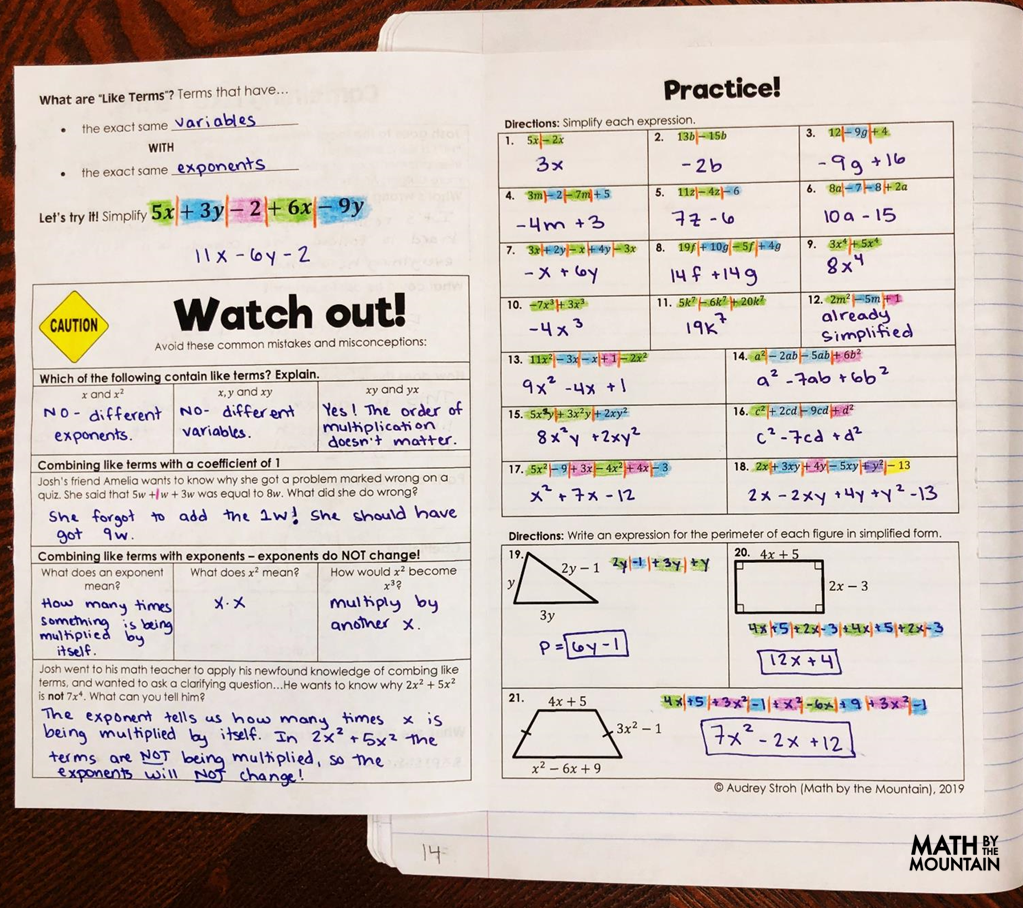 What are "Like Terms"? Terms that have…
• the exact same variables
WITH
• the exact same exponents
Let's try it! Simplify 5x + 3y − 2 + 6x − 9y
11x − 6y − 2
CAUTION
Watch out!
Avoid these common mistakes and misconceptions:
Which of the following contain like terms? Explain.
x and x²
NO - different
exponents.
x, y and xy
NO- different
variables.
xy and yx
Yes! The order of
multiplication
doesn't matter.
Combining like terms with a coefficient of 1
Josh's friend Amelia wants to know why she got a problem marked wrong on a
quiz. She said that 5w + 1w + 3w was equal to 8w. What did she do wrong?
She forgot to add the 1w! She should have
got 9w.
Combining like terms with exponents – exponents do NOT change!
What does an exponent
mean?
How many times
something is being
multiplied by
itself.
What does x² mean?
x·x
How would x² become
x³?
multiply by
another x.
Josh went to his math teacher to apply his newfound knowledge of combing like
terms, and wanted to ask a clarifying question…He wants to know why 2x² + 5x²
is not 7x⁴. What can you tell him?
The exponent tells us how many times x is
being multiplied by itself. In 2x² + 5x² the
terms are NOT being multiplied, so the
exponents will NOT change!
Practice!
Directions: Simplify each expression.
1. 5x − 2x
3x
2. 13b − 15b
−2b
3. 12 − 9g + 4
−9g + 16
4. 3m − 2 − 7m + 5
−4m + 3
5. 11z − 4z − 6
7z − 6
6. 8a − 7 − 8 + 2a
10a − 15
7. 3x + 2y − x + 4y − 3x
−x + 6y
8. 19f + 10g − 5f + 4g
14f + 14g
9. 3x⁴ + 5x⁴
8x⁴
10. −7x³ + 3x³
−4x³
11. 5k⁷ − 6k⁷ + 20k⁷
19k⁷
12. 2m² − 5m + 1
already
simplified
13. 11x² − 3x − x + 1 − 2x²
9x² − 4x + 1
14. a² − 2ab − 5ab + 6b²
a² − 7ab + 6b²
15. 5x²y + 3x²y + 2xy²
8x²y + 2xy²
16. c² + 2cd − 9cd + d²
c² − 7cd + d²
17. 5x² − 9 + 3x − 4x² + 4x − 3
x² + 7x − 12
18. 2x + 3xy + 4y − 5xy + y² − 13
2x − 2xy + 4y + y² − 13
Directions: Write an expression for the perimeter of each figure in simplified form.
19.
y
2y − 1
3y
2y − 1 + 3y + y
P = 6y − 1
20.
4x + 5
2x − 3
4x + 5 + 2x − 3 + 4x + 5 + 2x − 3
12x + 4
21.
4x + 5
3x² − 1
x² − 6x + 9
4x + 5 + 3x² − 1 + x² − 6x + 9 + 3x² − 1
7x² − 2x + 12
© Audrey Stroh (Math by the Mountain), 2019
14
MATH BY THE
MOUNTAIN